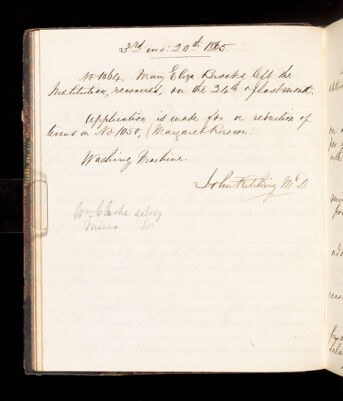 3rd mo: 20th 1865.
No 1064, Mary Eliza Brooks, left the
Institution, recovered, on the 24th of last month.
Application is made for a reduction of
terms in No 1050, (Margaret Brown)
Washing Machine.
John Kitching M.D.
salary